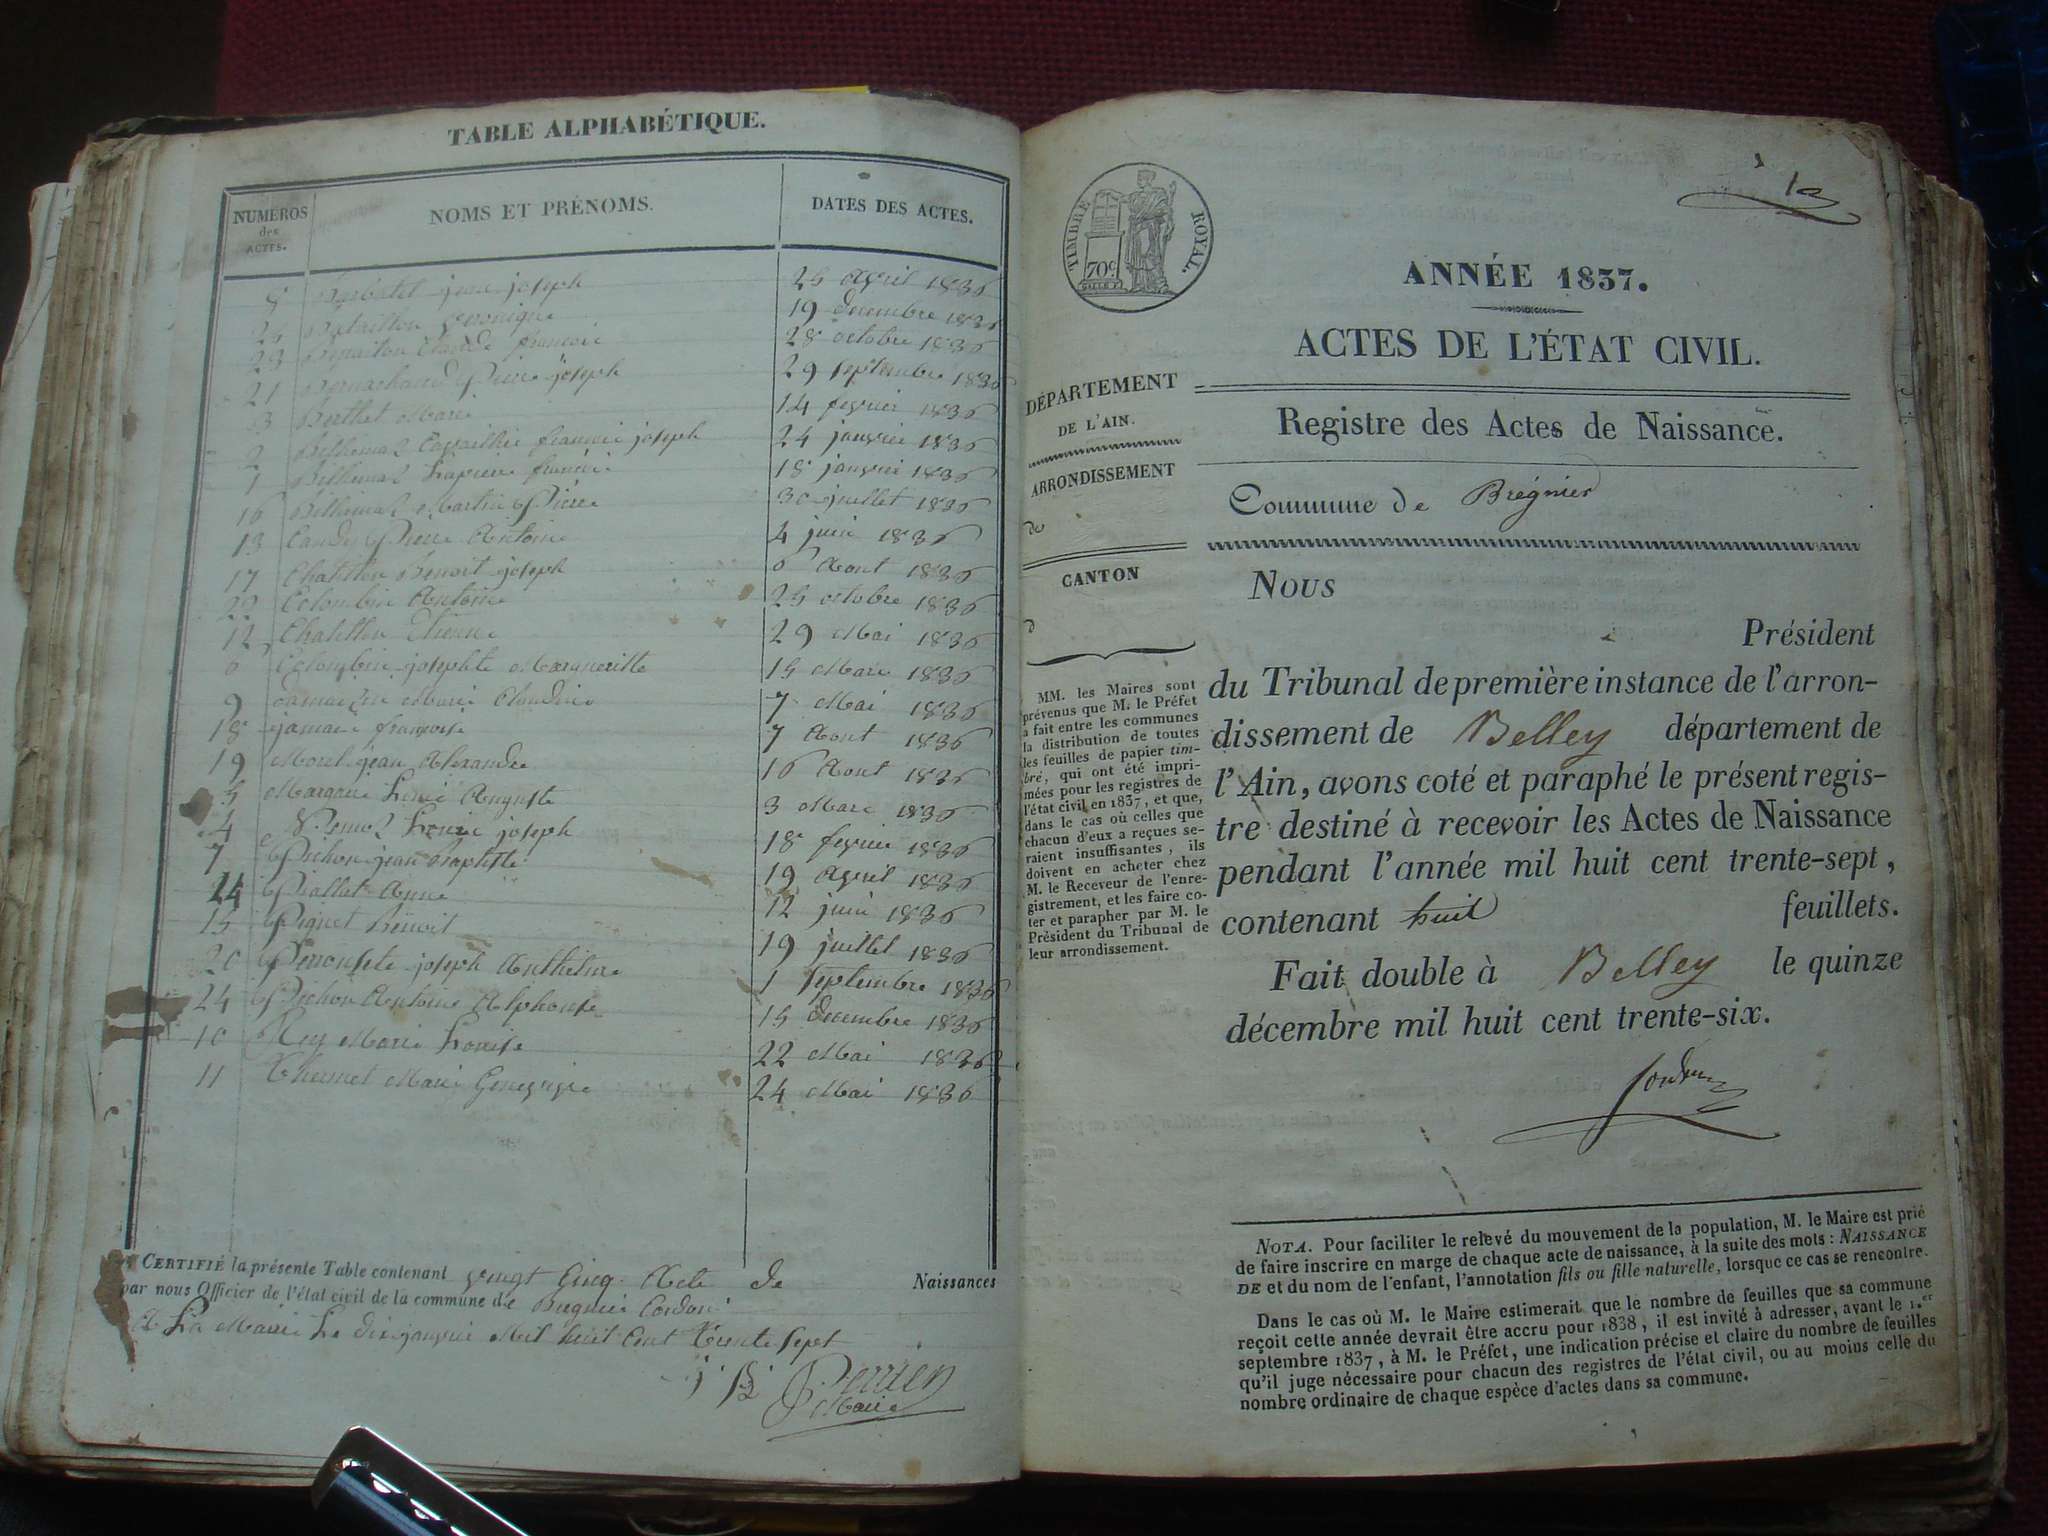 TABLE ALPHABÉTIQUE.
NUMÉROS
des
ACTES.
NOMS ET PRÉNOMS.
DATES DES ACTES.
8 jean joseph 25 avril 1836
Bataillon veronique 19 decembre 1836
23 Claude francois 28 octobre 1836
21 Pierre joseph 29 septembre 1836
3 Berthet Marie 14 fevrier 1836
2 francois joseph 24 janvier 1836
1 francois 18 janvier 1836
16 Martin Pierre 30 juillet 1836
13 Pierre Antoine 4 juin 1836
17 Chatillon Benoit joseph 6 Aout 1836
22 Colombin Antoine 25 octobre 1836
12 Chatillon Etienne 29 Mai 1836
6 Colombin josephte Margueritte 15 Mars 1836
9 Marie Claudine 7 Mai 1836
18 francoise 7 Aout 1836
19 Morel jean Alexandre 16 Aout 1836
5 Louis Auguste 3 Mars 1836
4 Louis joseph 18 fevrier 1836
7 Pichon jean Baptiste 19 avril 1836
14 Piollat Anne 12 juin 1836
15 Pignet Benoit 19 juillet 1836
20 joseph Anthelme 1 septembre 1836
24 Pichon Antoine Alphonse 15 decembre 1836
10 Rey Marie Louise 22 Mai 1836
11 Thermet Marie 24 Mai 1836
CERTIFIÉ la présente Table contenant vingt Cinq Acte de Naissances
par nous Officier de l'état civil de la commune de Bregnier Cordon
A La Mairie Le dix janvier Mil huit Cent Trente Sept
Perrier
Maire
TIMBRE ROYAL.
70c
13
ANNÉE 1837.
ACTES DE L'ÉTAT CIVIL.
DÉPARTEMENT
DE L'AIN.
ARRONDISSEMENT
de
CANTON
d
MM. les Maires sont
prévenus que M. le Préfet
a fait entre les communes
la distribution de toutes
les feuilles de papier tim-
bré, qui ont été impri-
mées pour les registres de
l'état civil en 1837, et que,
dans le cas où celles que
chacun d'eux a reçues se-
raient insuffisantes, ils
doivent en acheter chez
M. le Receveur de l'enre-
gistrement, et les faire co-
ter et parapher par M. le
Président du Tribunal de
leur arrondissement.
Registre des Actes de Naissance.
Commune de Brégnier
NOUS
Président
du Tribunal de première instance de l'arron-
dissement de Belley département de
l'Ain, avons coté et paraphé le présent regis-
tre destiné à recevoir les Actes de Naissance
pendant l'année mil huit cent trente-sept,
contenant huit feuillets.
Fait double à Belley le quinze
décembre mil huit cent trente-six.
NOTA. Pour faciliter le relevé du mouvement de la population, M. le Maire est prié
de faire inscrire en marge de chaque acte de naissance, à la suite des mots : NAISSANCE
DE et du nom de l'enfant, l'annotation fils ou fille naturelle, lorsque ce cas se rencontre.
Dans le cas où M. le Maire estimerait que le nombre de feuilles que sa commune
reçoit cette année devrait être accru pour 1838, il est invité à adresser, avant le 1.er
septembre 1837, à M. le Préfet, une indication précise et claire du nombre de feuilles
qu'il juge nécessaire pour chacun des registres de l'état civil, ou au moins celle du
nombre ordinaire de chaque espèce d'actes dans sa commune.